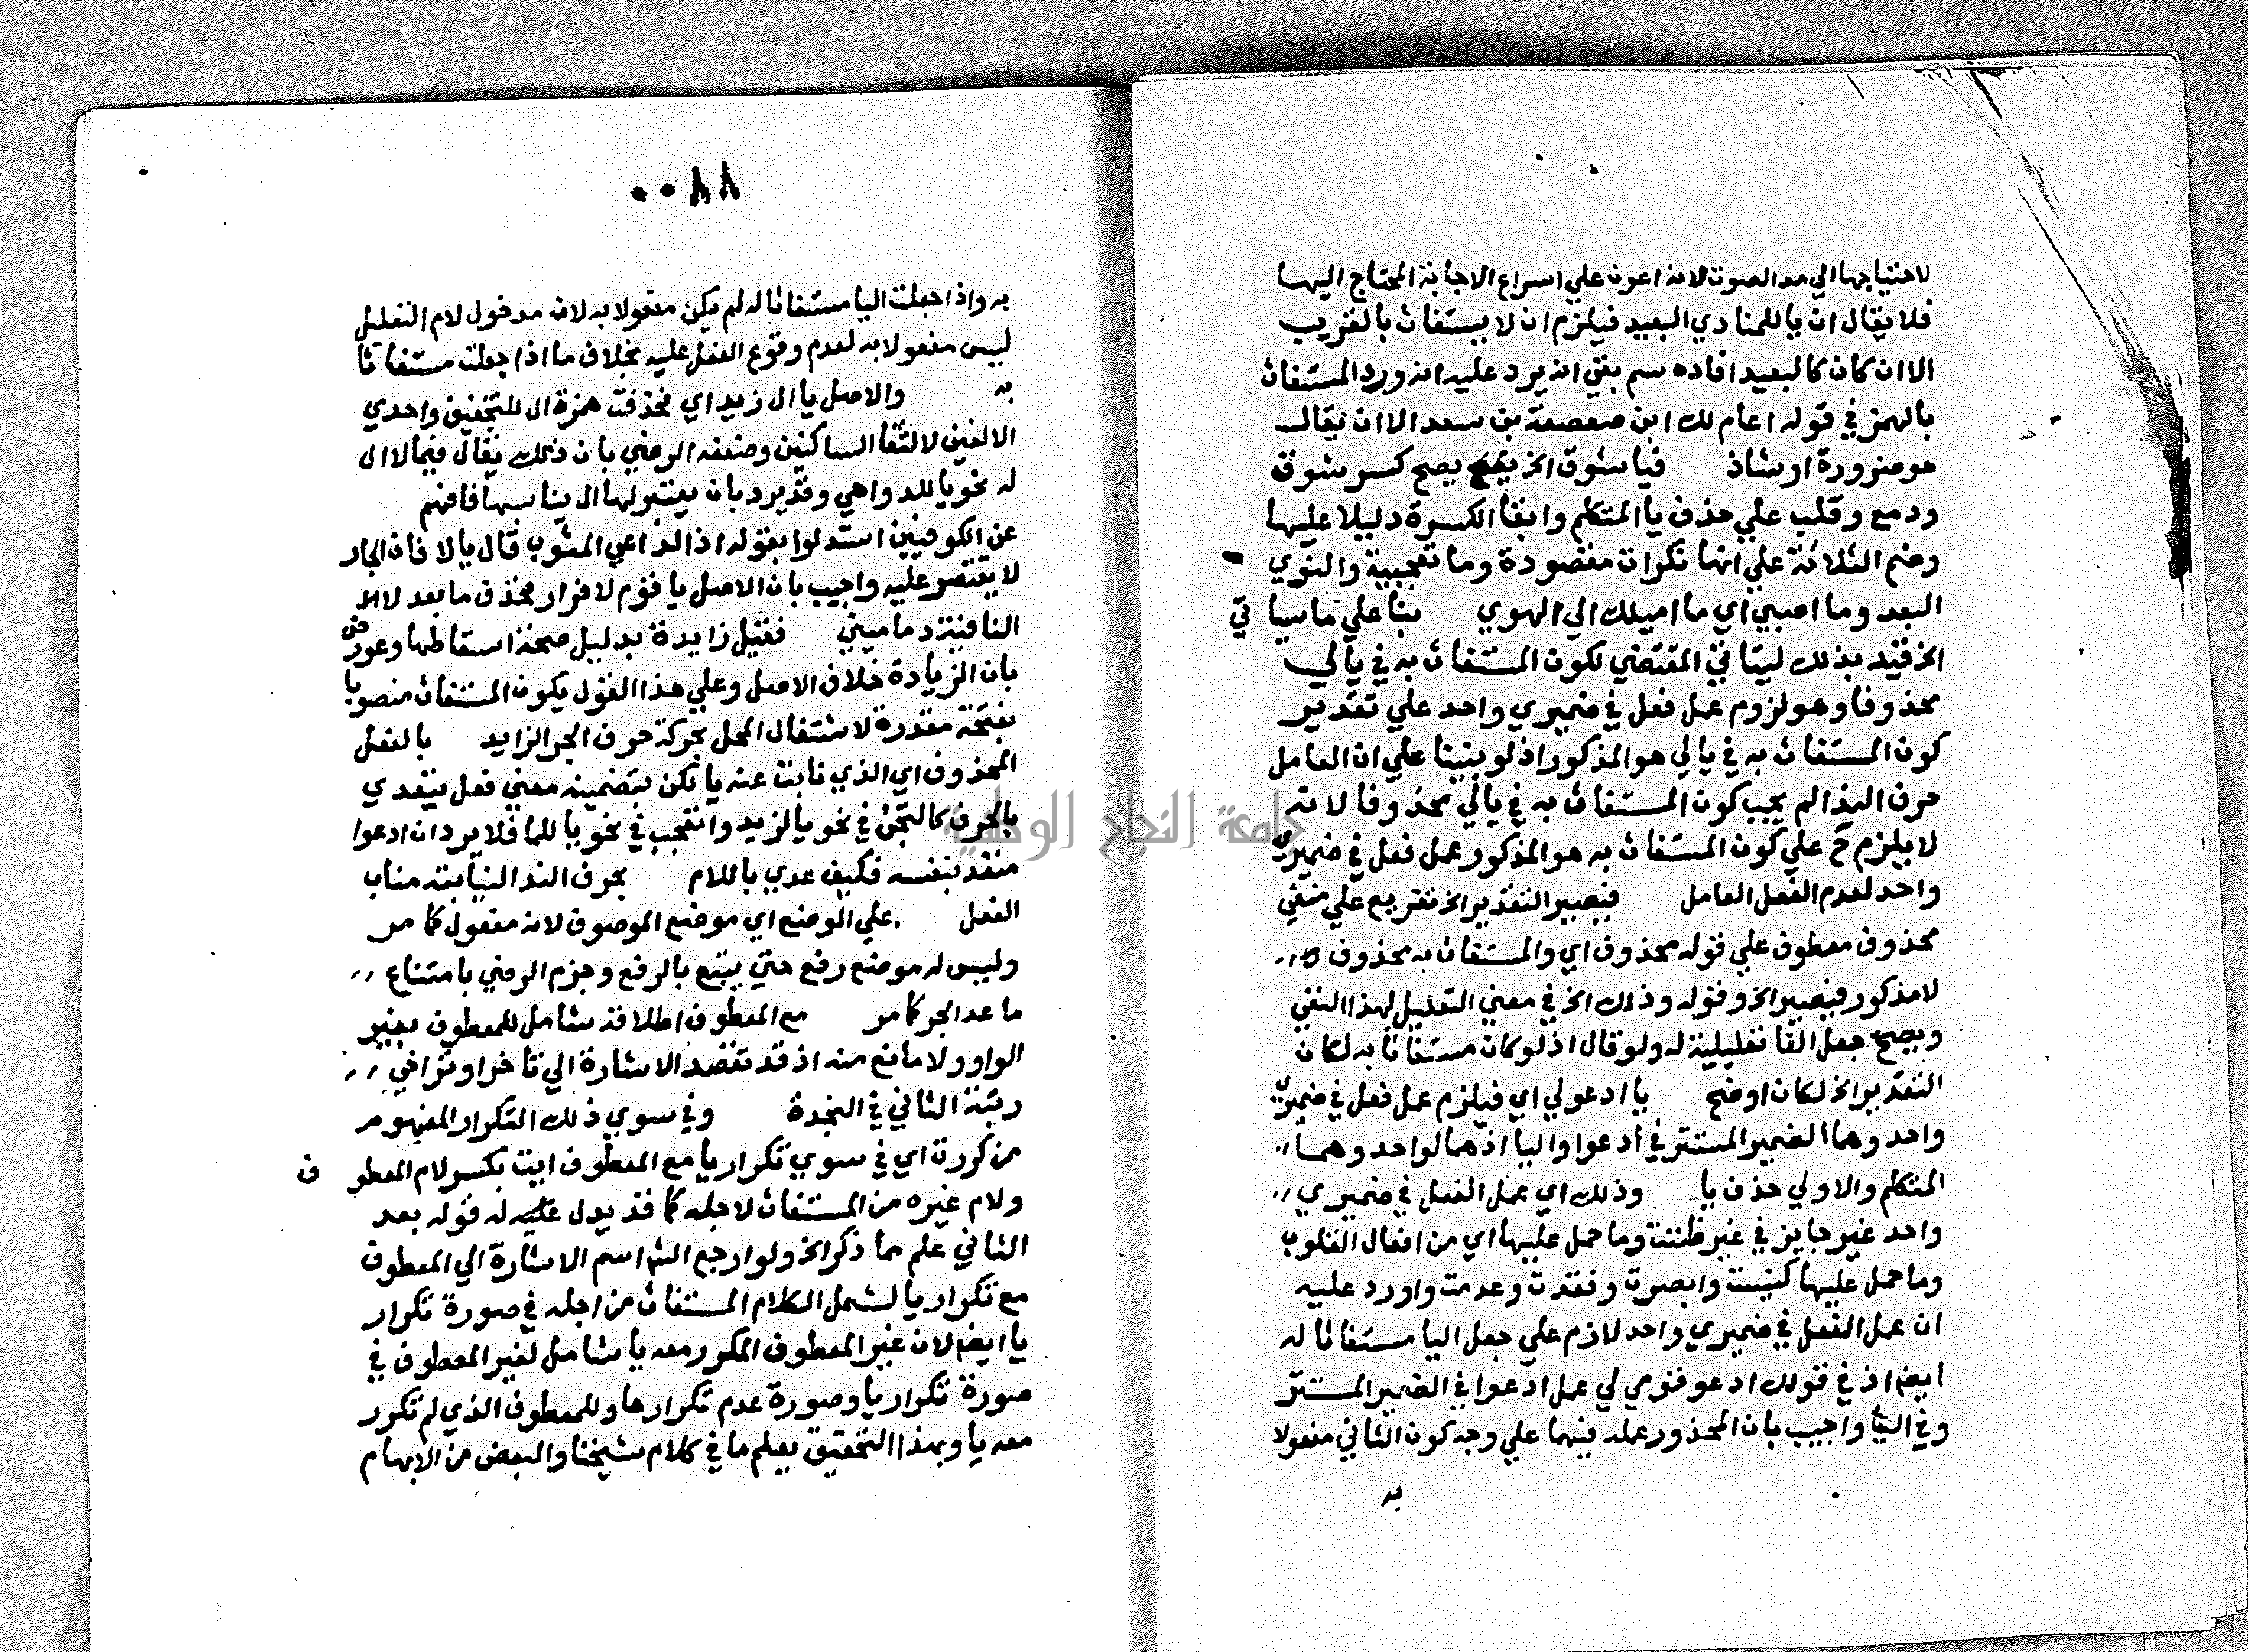 لاحتياجها الي مد الصوت لانه اعون علي اسراع الاجابة المحتاج اليها
فلا يقال ان يا للمنادي البعيد فيلزم ان لا يستغاث بالقريب
الا ان كان كالبعيد افاده سم بقي انه يرد عليه انه ورد المستغاث
بالهمز في قوله اعام لك ابن صعصعة بن سعد الا ان يقال
هو ضرورة او شاذ فيا شوق الخ يصح كسر شوق
ودمع وقلب علي حذف يا المتكلم وابقا الكسرة دليلا عليها
وضم الثلاثة علي انها نكرات مقصودة وما تعجبية والنوي
البعد وما اصبي اي ما اميلك الي الهوي بنا علي ما سياتي
الخ قيد بذلك ليتاتي المقتضي لكون المستغاث به في يا لي
محذوفا وهو لزوم عمل فعل في ضميري واحد علي تقدير
كون المستغاث به في يا لي هو المذكور اذ لو بنينا علي ان العامل
حرف الندا لم يجب كون المستغاث به في يا لي محذوفا لانه
لا يلزم ح علي كون المستغاث به هو المذكور عمل فعل في ضميري
واحد لعدم الفعل العامل فيصير التقدير الخ تفريع علي منفي
محذوف معطوف علي قوله محذوف اي والمستغاث به محذوف
لا مذكور فيصير الخ وقوله وذلك الخ في معني التعليل لهذا النفي
ويصح جعل الفا تعليلية له ولو قال اذ لو كان مستغاثا به لكان
التقدير الخ لكان اوضح يا ادعو لي اي فيلزم عمل فعل في ضميري
واحد وهما الضمير المستتر في ادعوا واليا اذ هما لواحد وهما
المتكلم والاولي حذف يا وذلك اي عمل الفعل في ضميري
واحد غير جايز في غير ظننت وما حمل عليها اي من افعال القلوب
وما حمل عليها كنيست وابصرت وفقدت وعدمت واورد عليه
ان عمل الفعل في ضميري واحد لازم علي جعل اليا مستغاثا له
ايضا اذ في قولك ادعو قومي لي عمل ادعوا في الضمير المستتر
وفي اليا واجيب بان المحذور عمله فيهما علي وجه كون الثاني مفعولا
به
٨٨٠٠
به واذا جعلت اليا مستغاثا له لم يكن مفعولا به لان مدخول لام التعليل
ليس مفعولا به لعدم وقوع الفعل عليه بخلاف ما اذا جعلت مستغاثا
به والاصل يا ال زيد اي فحذفت همزة ال للتخفيف واحدي
الالفين لالتقا الساكنين وضعفه الرضي بان ذلك يقال فيما لا ال
له نحو يا للدواهي وقد يرد بان يعتبر لها ال يناسبها فافهم
عن الكوفيين استدلوا بقوله اذا الداعي المثوب قال يا لا فان الجار
لا يقتصر عليه واجيب بان الاصل يا قوم لا فرار فحذف ما بعد لا
النافية دماميني فقيل زايدة بدليل صحة اسقاطها وعورض
بان الزيادة خلاف الاصل وعلي هذا القول يكون المستغاث منصوبا
بفتحة مقدرة لاشتغال المحل بحركة حرف الجر الزايد بالفعل
المحذوف اي الذي نابت عنه يا لكن بتضمينه معني فعل يتعدي
بالحرف كالتجئ في نحو يا لزيد واتعجب في نحو يا للما فلا يرد ان ادعوا
متعد بنفسه فكيف عدي باللام بحرف الندا لنيابته مناب
الفعل علي الموضع اي موضع الموصوف لانه مفعول كما مر
وليس له موضع رفع حتي يتبع بالرفع وجزم الرضي بامتناع
ما عدا الجر كما مر مع المعطوف اطلاقه شامل للمعطوف بغير
الواو ولا مانع منه اذ قد تقصد الاشارة الي تاخر او تراخي
رتبة الثاني في النجدة وفي سوي ذلك التكرار المفهوم
من كررت اي في سوي تكرار يا مع المعطوف ايت بكسر لام المعطوف
ولام غيره من المستغاث لاجله كما قد يدل عليه له قوله بعد
الثاني علم مما ذكر الخ ولو ارجع الش اسم الاشارة الي المعطوف
مع تكرار يا لشمل الكلام المستغاث من اجله في صورة تكرار
يا ايضا لان غير المعطوف المكرر معه يا شامل لغير المعطوف في
صورة تكرار يا وصورة عدم تكرارها وللمعطوف الذي لم تكرر
معه يا وبهذا التحقيق يعلم ما في كلام شيخنا والبعض من الابهام
جامعة النجاح الوطنية